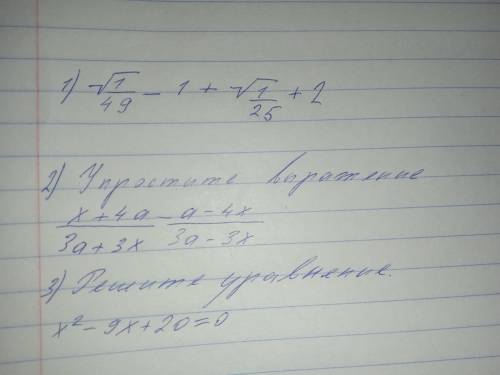 1) √1/49 - 1 + √1/25 + 2
2) Упростите выражение
x+4a/3a+3x - a-4x/3a-3x
3) Решите уравнение.
x² - 9x + 20 = 0